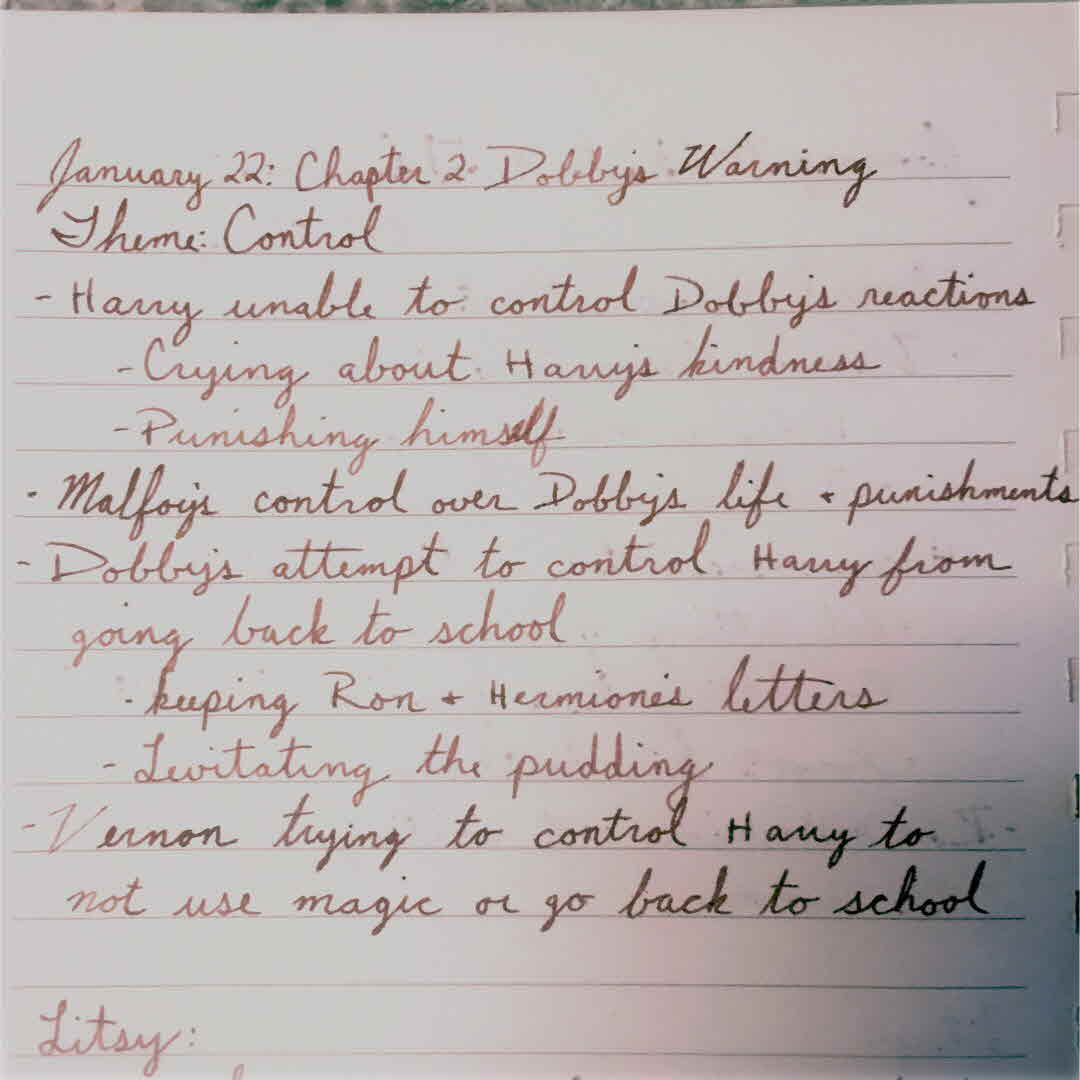 January 22: Chapter 2: Dobby's Warning
Theme: Control
- Harry unable to control Dobby's reactions
- Crying about Harry's kindness
- Punishing himself
- Malfoy's control over Dobby's life + punishments
- Dobby's attempt to control Harry from
going back to school
- keeping Ron + Hermione's letters
- Levitating the pudding
- Vernon trying to control Harry to
not use magic or go back to school
Litsy: